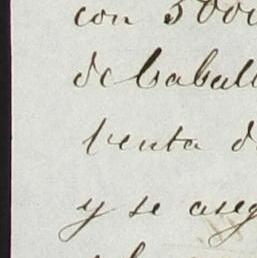 con 500
de Caball
venta d
y se aseg